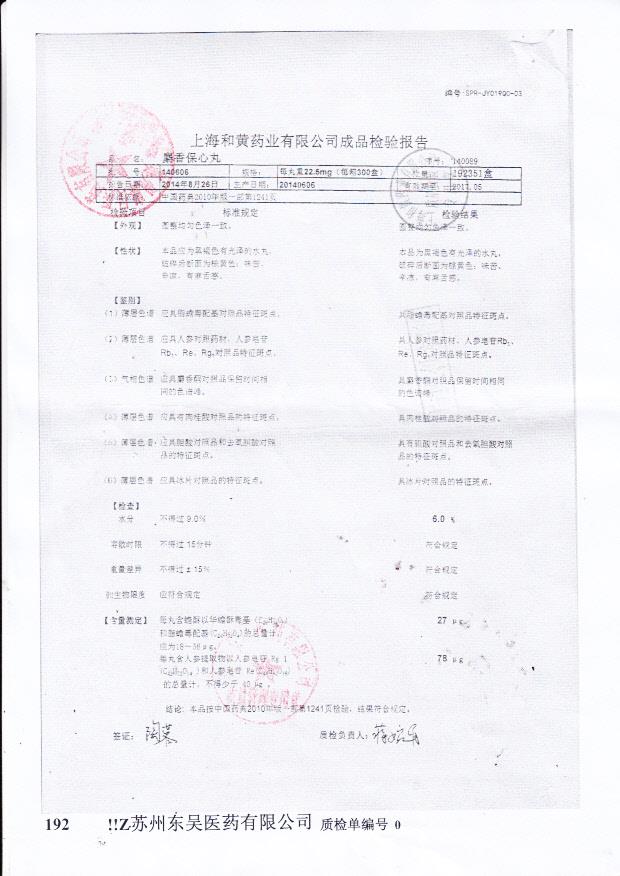 编号:SPR-JY019QC-03
上海和黄药业有限公司成品检验报告
品 名: 麝香保心丸 序号: 140089
批 号: 140606 规格: 每丸重22.5mg(每箱300盒) 数量: 192351盒
报告日期: 2014年8月26日 生产日期: 20140606 有效期至: 2017.05
检验依据: 中国药典2010年版一部第1241页
检验项目 标准规定 检验结果
【外观】 圆整均匀色泽一致。 圆整均匀色泽一致。
【性状】 本品应为黑褐色有光泽的水丸, 本品为黑褐色有光泽的水丸,
破碎后断面为棕黄色;味苦、 破碎后断面为棕黄色;味苦、
辛凉,有麻舌感。 辛凉,有麻舌感。
【鉴别】
(1)薄层色谱 应具脂蟾毒配基对照品特征斑点。 具脂蟾毒配基对照品特征斑点。
(2)薄层色谱 应具人参对照药材、人参皂苷 具人参对照药材、人参皂苷Rb₁、
Rb₁、Re、Rg₁对照品特征斑点。 Re、Rg₁对照品特征斑点。
(3)气相色谱 应具麝香酮对照品保留时间相 具麝香酮对照品保留时间相同
同的色谱峰。 的色谱峰
(4)薄层色谱 应具有肉桂酸对照品的特征斑点。 具肉桂酸对照品的特征斑点。
(5)薄层色谱 应具胆酸对照品和去氧胆酸对照 具有胆酸对照品和去氧胆酸对照
品的特征斑点。 品的特征斑点。
(6)薄层色谱 应具冰片对照品的特征斑点。 具冰片对照品的特征斑点。
【检查】
水分 不得过9.0% 6.0 %
溶散时限 不得过15分钟 符合规定
重量差异 不得过±15% 符合规定
微生物限度 应符合规定 符合规定
【含量测定】 每丸含蟾酥以华蟾酥毒基 27 μg
和脂蟾毒配基 的总量计,
应为18~36μg。
每丸含人参提取物以人参皂苷Rg1 78 μg
和人参皂苷Re
的总量计,不得少于40μg。
结论:本品按中国药典2010年版一部第1241页检验,结果符合规定。
签证: 质检负责人:
192 !!Z苏州东吴医药有限公司 质检单编号 0